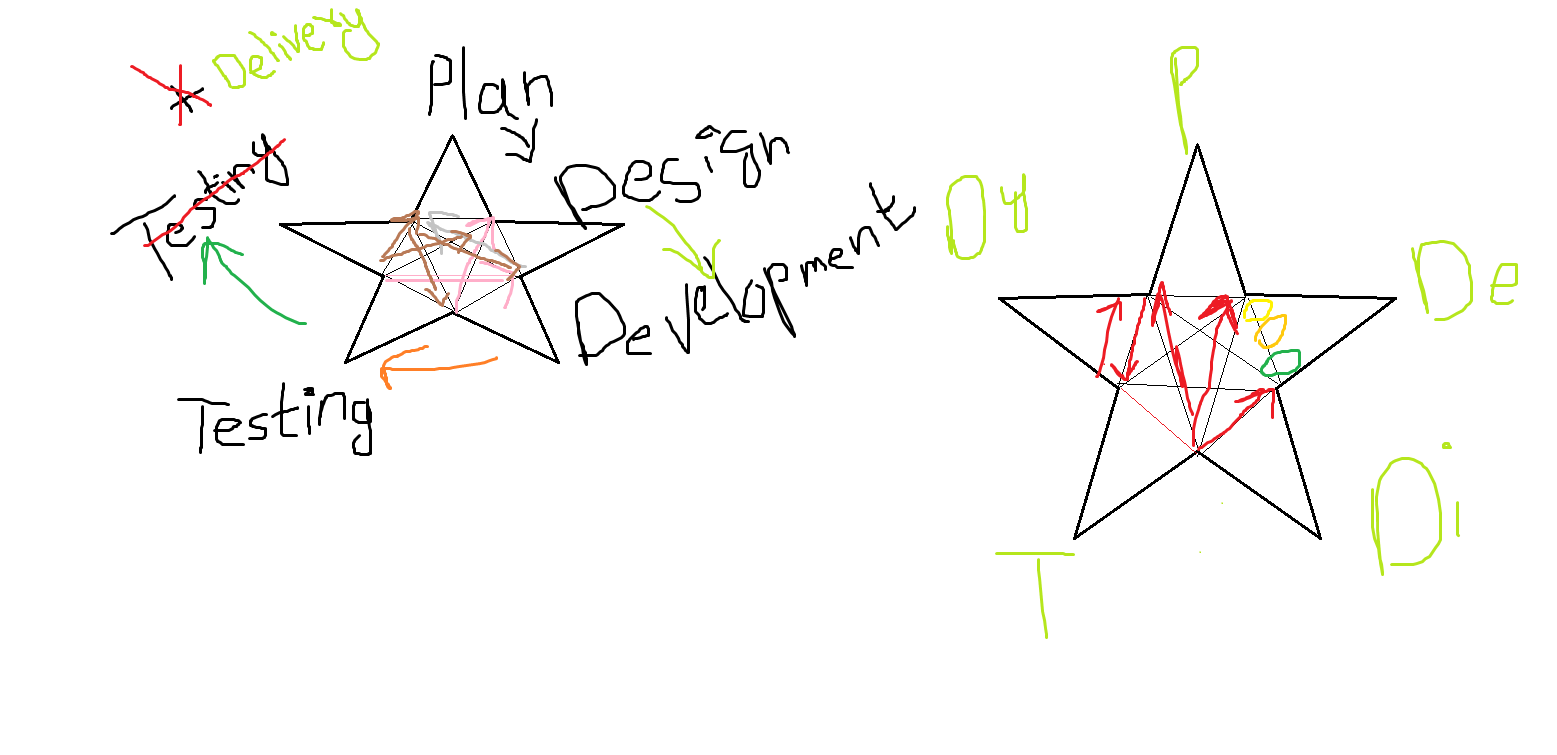 Delivery
Plan
Testing
Design
Development
Testing
P
Dy
De
Di
T